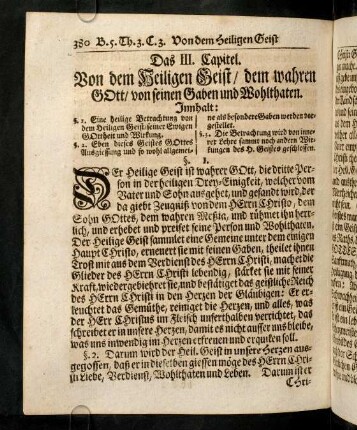 380 B. 5. Th. 3. C. 3. Von dem Heiligen Geist
Das III. Capitel.
Von dem Heiligen Geist / dem wahren
GOtt / von seinen Gaben und Wohlthaten.
Innhalt:
§. 1. Eine heilige Betrachtung von
dem Heiligen Geist, seiner Ewigen
GOttheit und Würckung.
§. 2. Eben dieses Geistes GOttes
Ausgiessung und so wohl allgemei-
ne als besondere Gaben werden vor-
gestellet.
§. 3. Die Betrachtung wird von inne-
rer Lehre sammt noch andern Wür-
ckungen des H. Geistes geschlossen.
§. 1.
DEr Heilige Geist ist wahrer GOtt, die dritte Per-
son in der heiligen Drey-Einigkeit, welcher vom
Vater und Sohn ausgehet, und gesandt wird, der
da giebt Zeugniß von dem HErrn Christo, dem
Sohn GOttes, dem wahren Meßia, und rühmet ihn herr-
lich, und erhebet und preiset seine Person und Wohlthaten.
Der Heilige Geist sammlet eine Gemeine unter dem einigen
Haupt Christo, erneuert sie mit seinen Gaben, theilet ihnen
Trost mit aus dem Verdienst des HErrn Christi, machet die
Glieder des HErrn Christi lebendig, stärcket sie mit seiner
Kraft, wiedergebiehret sie, und bestätiget das geistliche Reich
des HErrn Christi in den Herzen der Gläubigen: Er er-
leuchtet das Gemüthe, reiniget die Herzen, und alles, was
der HErr Christus im Fleisch unserthalben verrichtet, das
schreibet er in unsere Herzen, damit es nicht ausser uns bleibe,
was uns inwendig im Herzen erfreuen und erquicken soll.
§. 2. Darum wird der Heil. Geist in unsere Herzen aus-
gegossen, daß er in dieselben giessen möge des HErrn Chri-
sti Liebe, Verdienst, Wohlthaten und Leben. Darum ist er
Chri-